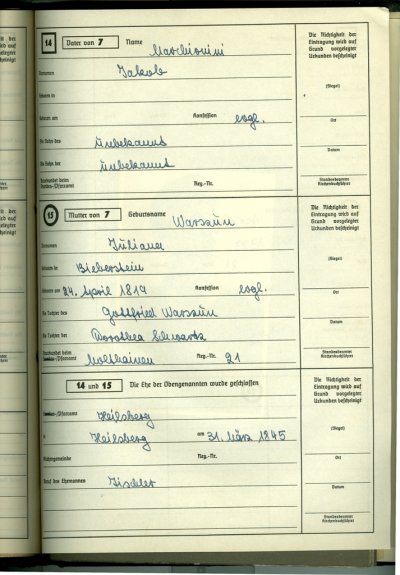 14 Vater von 7 Name Marchionini
Vornamen Jakob
Geboren in
Geboren am Konfession evgl.
Als Sohn des Unbekannt
Und der Unbekannt
Beurkundet beim
Standes-/Pfarramt Reg.-Nr.
Die Richtigkeit der
Eintragung wird auf
Grund vorgelegter
Urkunden bescheinigt
(Siegel)
Ort
Datum
Standesbeamter
Kirchenbuchführer
15 Mutter von 7 Geburtsname Warszun
Vornamen Juliana
Geboren in Bieberstein
Geboren am 24. April 1819 Konfession evgl.
Als Tochter des Gottfried Warszun
Und der Dorothea Schwartz
Beurkundet beim
Standes-/Pfarramt Reg.-Nr. 21
Die Richtigkeit der
Eintragung wird auf
Grund vorgelegter
Urkunden bescheinigt
(Siegel)
Ort
Datum
Standesbeamter
Kirchenbuchführer
14 und 15 Die Ehe der Obengenannten wurde geschlossen
Standes-/Pfarramt Heilsberg
in Heilsberg am 31. März 1845
Kirchengemeinde Reg.-Nr.
Beruf des Ehemannes Tischler
Die Richtigkeit der
Eintragung wird auf
Grund vorgelegter
Urkunden bescheinigt
(Siegel)
Ort
Datum
Standesbeamter
Kirchenbuchführer